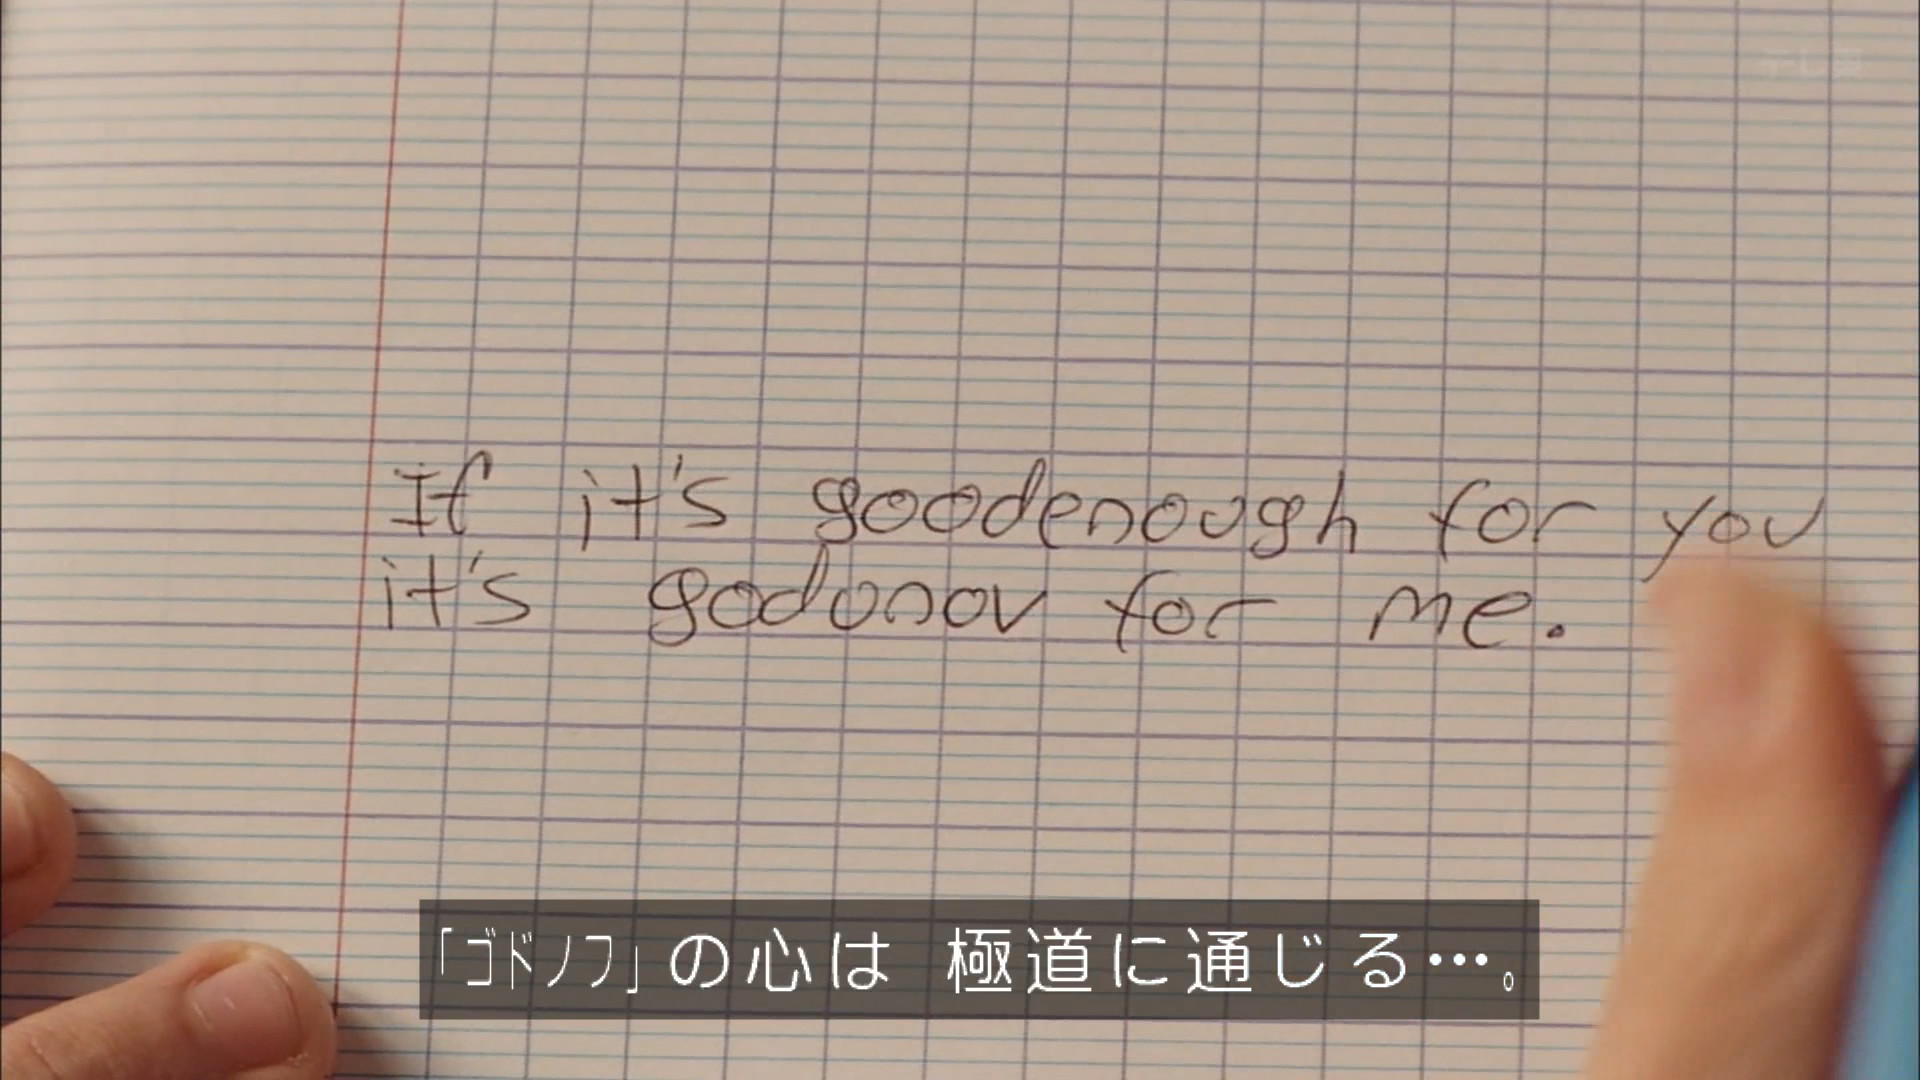 テレ東
If it's goodenough for you
it's godonov for me.
｢ゴドノフ｣の心は 極道に通じる…。